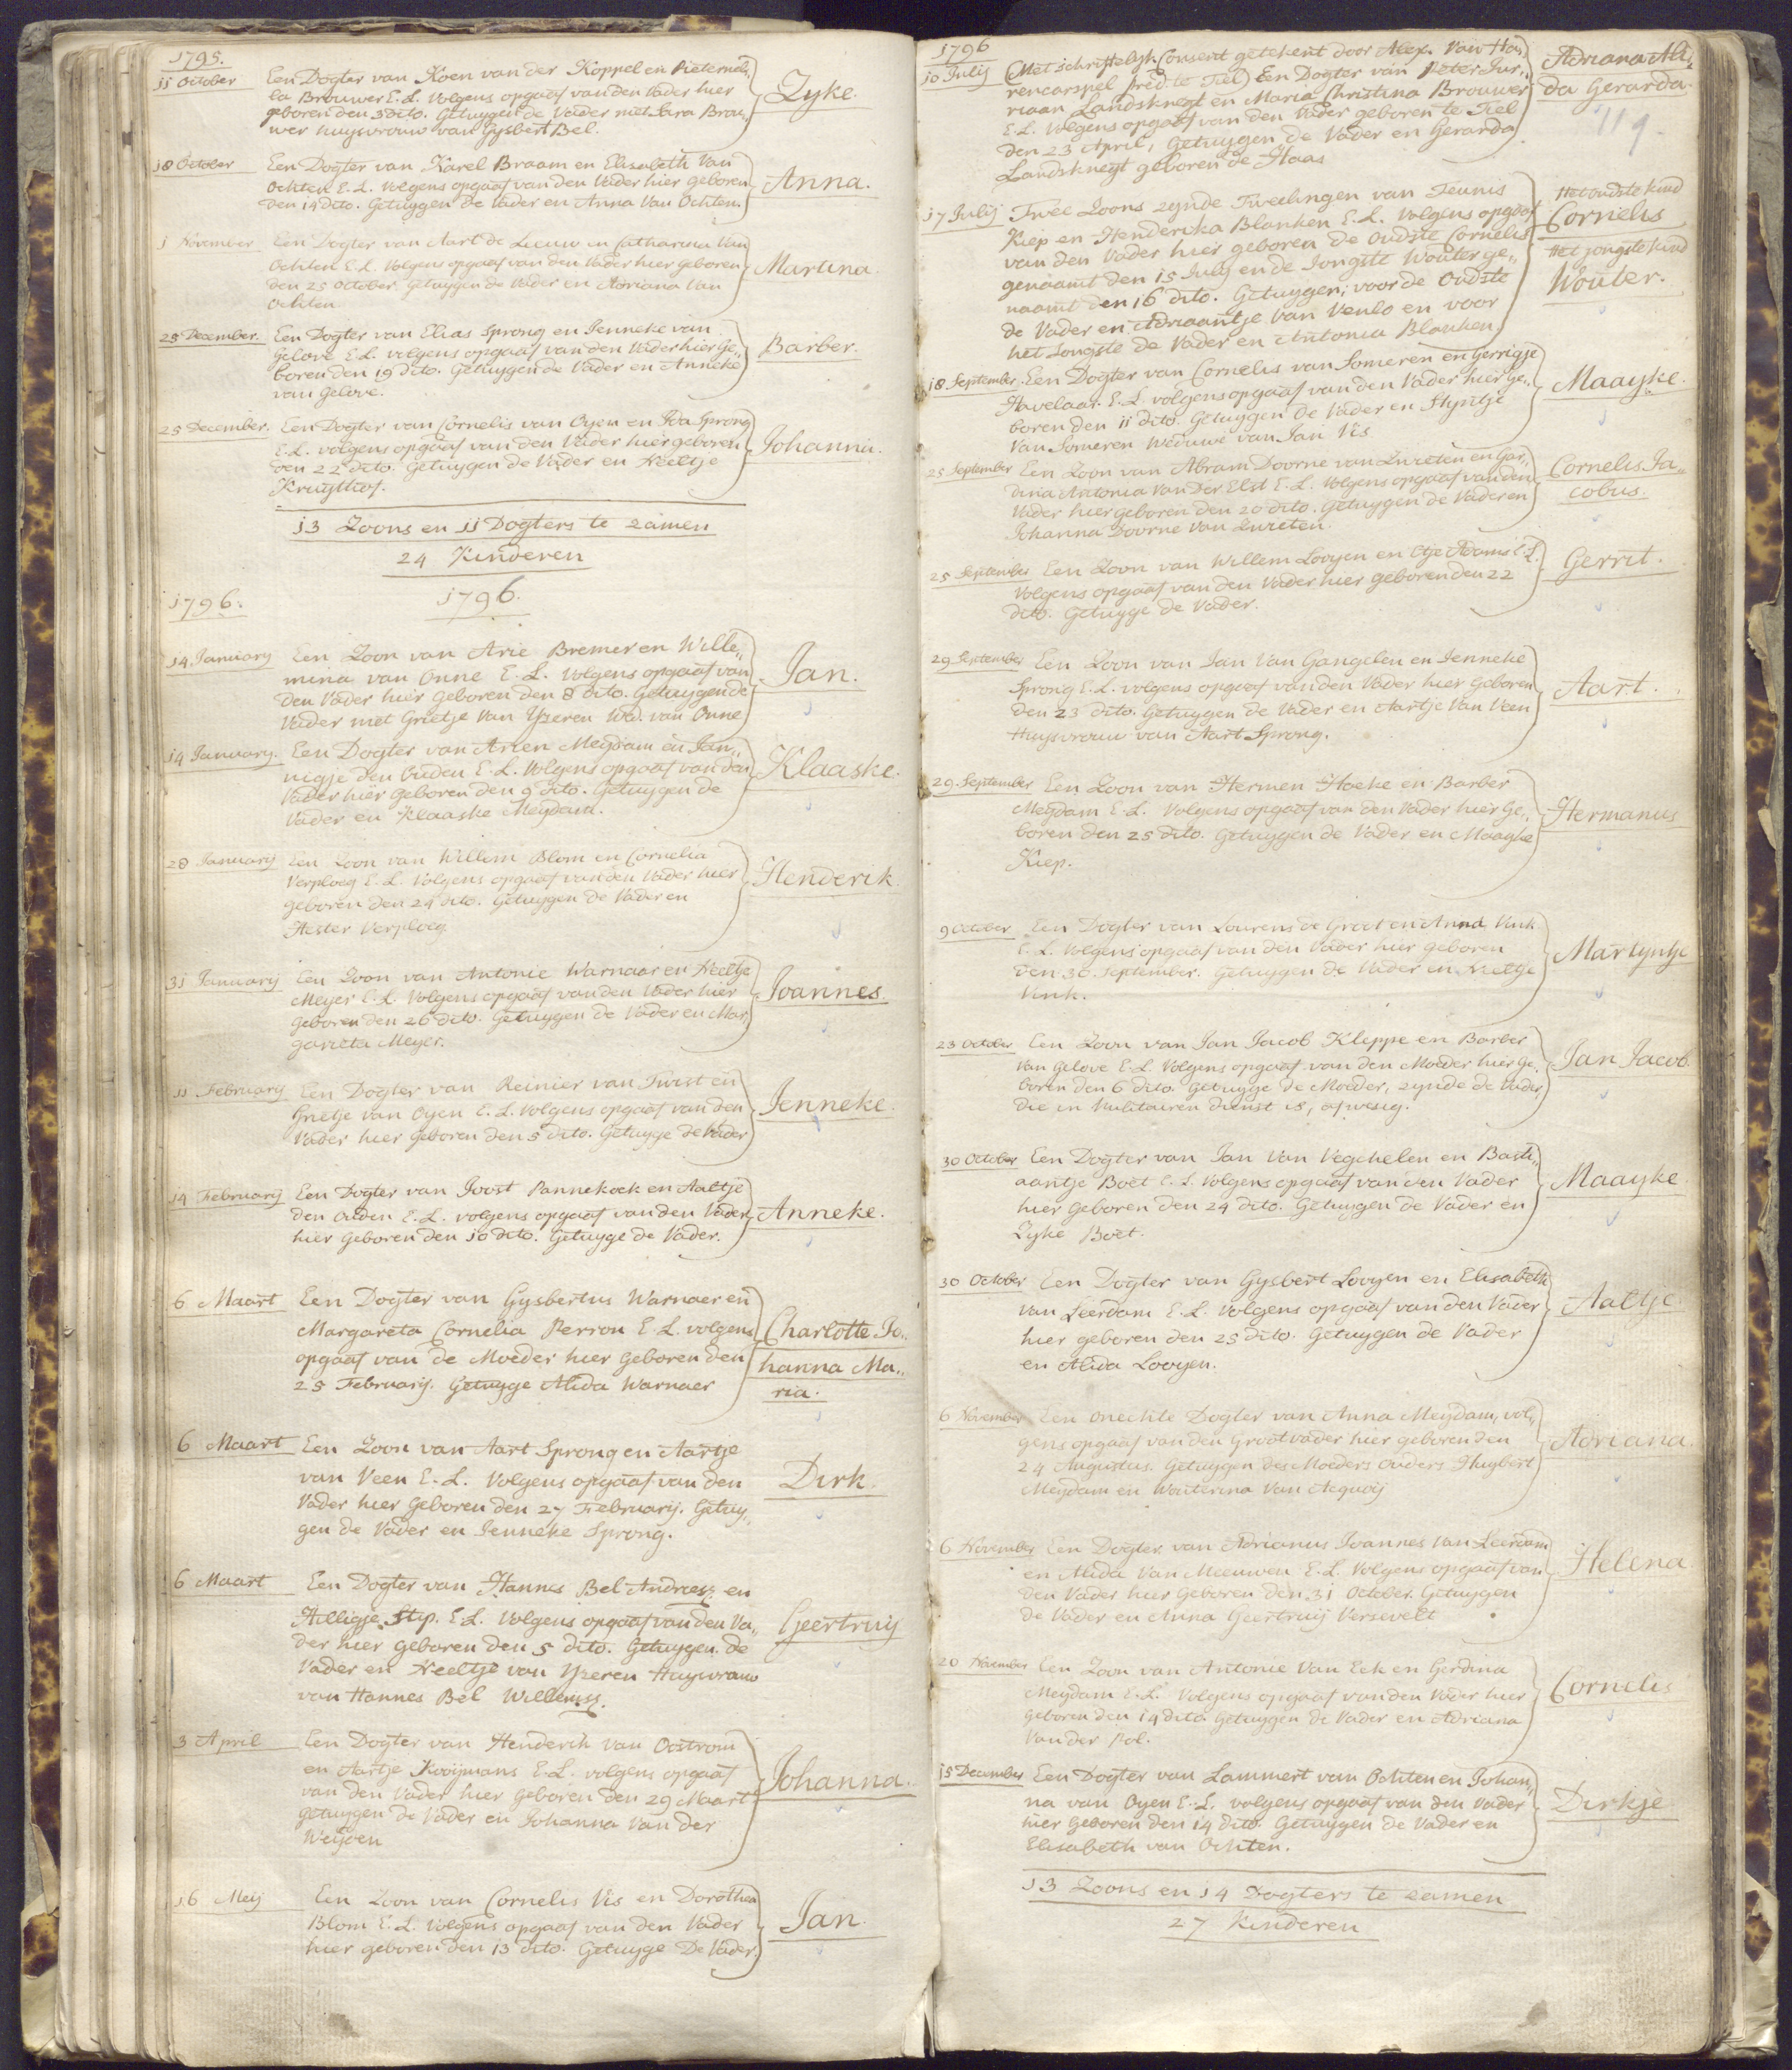 1795.
11 October Een Dogter van Koen van der Koppel en Pieternel„
la Brouwer E. L. Volgens opgaaf van den Vader hier
geboren den 3 dito. Getuygen de Vader met Sara Brou„
wer huysvrouw van Gysbert Bel.
Zyke.
18 October Een Dogter van Karel Braam en Elisabeth Van
Ochten E. L. Volgens opgaaf van den Vader hier geboren
den 14 dito. Getuygen de Vader en Anna Van Ochten.
Anna.
1 November Een Dogter van Aart de Leeuw en Catharina Van
Ochten E. L. Volgens opgaaf van den Vader hier geboren
den 25 October. Getuygen de Vader en Adriana Van
Ochten
Martina.
25 December. Een Dogter van Elias Sprong en Jenneke van
Gelove E. L. volgens opgaaf van den Vader hier Ge„
boren den 19 dito. Getuygen de Vader en Anneke
van Gelove.
Barber.
25 December. Een Dogter van Cornelis van Oyen en Ida Sprong
E. L. volgens opgaaf van den Vader hier geboren
den 22 dito. Getuygen de Vader en Neeltje
Kruythof.
Johanna.
13 Zoons en 11 Dogters te zamen
24 Kinderen
1796. 1796.
14 January Een Zoon van Arie Bremer en Wille„
mina van Onne E. L. Volgens opgaaf van
den Vader hier Geboren den 8 dito. Getuygen de
Vader met Grietje Van Yzeren Wed. van Onne
Jan.
14 January. Een Dogter van Arien Meydam en Jan„
nigje den Ouden E. L. Volgens opgaaf van den
Vader hier Geboren den 9 dito. Getuygen de
Vader en Klaaske Meydam.
Klaaske.
28 January Een Zoon van Willem Blom en Cornelia
Verploeg E. L. Volgens opgaaf van den Vader hier
geboren den 24 dito. Getuygen de Vader en
Hester Verploeg
Henderik.
31 January Een Zoon van Antonie Warnaar en Neeltje
Meyer E. L. Volgens opgaaf van den Vader hier
Geboren den 26 dito. Getuygen de Vader en Mar„
garieta Meyer.
Joannes.
11 February Een Dogter van Reinier van Twist en
Grietje van Oyen E. L. Volgens opgaaf van den
Vader hier Geboren den 5 dito. Getuyge de Vader
Jenneke.
14 February Een Dogter van Joost Pannekoek en Aaltje
den Ouden E. L. volgens opgaaf van den Vader
hier Geboren den 10 dito. Getuyge de Vader.
Anneke.
6 Maart Een Dogter van Gysbertus Warnaer en
Margareta Cornelia Perron E. L. volgens
opgaaf van de Moeder hier Geboren den
25 February. Getuyge Alida Warnaer
Charlotte Jo„
hanna Ma„
ria.
6 Maart Een Zoon van Aart Sprong en Aartje
van Veen E. L. Volgens opgaaf van den
Vader hier Geboren den 27 February. Getuy„
gen de Vader en Jenneke Sprong.
Dirk.
6 Maart Een Dogter van Hannes Bel Andriesz: en
Hilligje Stip. E. L. Volgens opgaaf van den Va„
der hier geboren den 5 dito. Getuygen de
Vader en Neeltje van Yzeren Huysvrouw
van Hannes Bel Willemsz.
Geertruy
3 April Een Dogter van Henderik van Oostrom
en Aartje Kooijmans E. L. volgens opgaaf
van den Vader hier Geboren den 29 Maart
getuygen de Vader en Johanna Van der
Weijden
Johanna.
16 Meij Een Zoon van Cornelis Vis en Dorothea
Blom E. L. Volgens opgaaf van den Vader
hier geboren den 13 dito. Getuyge De Vader.
Jan.
1796
10 Julij (Met schriftelyk Consent getekent door Alex. Van Ha„
rencarspel pred. te Tiel) Een Dogter van Peter Jur„
riaan Landsknegt en Maria Christina Brouwer
E. L. Volgens opgaaf van den Vader geboren te Tiel
den 23 April, Getuygen de Vader en Gerarda
Landsknegt geboren de Haas
Adriana Ali„
da Gerarda.
119.
17 Julij Twee Zoons zynde Tweelingen van Teunis
Kiep en Henderika Blanken E. L. Volgens opgaaf
van den Vader hier geboren de Oudste Cornelis
genaamt den 15 July en de Jongste Wouter ge„
naamt den 16 dito. Getuygen; voor de Oudste
de Vader en Adriaantje Van Venlo en voor
het Jongste de Vader en Antonia Blanken.
Het oudste kind
Cornelis
Het jongste kind
Wouter.
18 September. Een Dogter van Cornelis van Someren en Gerrigje
Havelaar. E. L. volgens opgaaf van den Vader hier ge„
boren den 11 dito. Getuygen de Vader en Styntje
Van Someren Weduwe van Jan Vis
Maayke.
25 September Een Zoon van Abram Doorne van Zwieten en Ger„
dina Antonia Van Der Elst E. L. Volgens opgaaf van den
Vader hier geboren den 20 dito. Getuygen de Vader en
Johanna Doorne Van Zwieten.
Cornelis Ja„
cobus.
25 September Een Zoon van Willem Looyen en Otje Adams E. L.
Volgens opgaaf van den Vader hier geboren den 22
dito. Getuyge de Vader.
Gerrit.
29 September Een Zoon van Jan Van Gangelen en Jenneke
Sprong E. L. volgens opgaaf van den Vader hier Geboren
den 23 dito. Getuygen de Vader en Aartje Van Veen
Huysvrouw van Aart Sprong.
Aart.
29. September Een Zoon van Hermen Hoeke en Barber
Meydam E. L. Volgens opgaaf van den Vader hier Ge„
boren den 25 dito. Getuygen de Vader en Maayke
Kiep.
Hermanus
9 October Een Dogter van Lourens de Groot en Anna Vink
E. L. Volgens opgaaf van den Vader hier geboren
den 30 September. Getuygen de Vader en Neeltje
Vink.
Martyntje
23 October Een Zoon van Jan Jacob Kleppe en Barber
Van Gelove E. L. Volgens opgaaf van den Moeder hier Ge„
boren den 6 dito. Getuyge de Moeder, zynde de Vader,
die in Militairen dienst is, afwesig.
Jan Jacob.
30 October Een Dogter van Jan Van Vegchelen en Basti„
aantje Boet E. L. Volgens opgaaf van den Vader
hier Geboren den 24 dito. Getuygen de Vader en
Zyke Boët.
Maayke
30 October Een Dogter van Gysbert Looyen en Elisabeth
van Leerdam E. L. Volgens opgaaf van den Vader
hier geboren den 25 dito. Getuygen de Vader
en Alida Looyen.
Aaltje
6 November Een onechte Dogter van Anna Meydam, vol„
gens opgaaf van den Grootvader hier geboren den
24 Augustus. Getuygen des Moeders Ouders Huybert
Meydam en Wouterina Van Acquoij
Adriana.
6 November Een Dogter van Adrianus Joannes Van Leerdam
en Alida Van Meeuwen E. L. Volgens opgaaf van
den Vader hier Geboren den 31 October. Getuygen
de Vader en Anna Geertruij Versevelt
Helena
20 November Een Zoon van Antonie Van Eck en Gerdina
Meydam E. L. Volgens opgaaf van den Vader hier
geboren den 14 dito. Getuygen de Vader en Adriana
Van der Pol.
Cornelis
15 December Een Dogter van Lammert van Ochten en Johan„
na van Oyen E. L. volgens opgaaf van den Vader
hier Geboren den 14 dito. Getuygen de Vader en
Elisabeth van Ochten.
Dirkje
13 Zoons en 14 Dogters te zamen
27 Kinderen